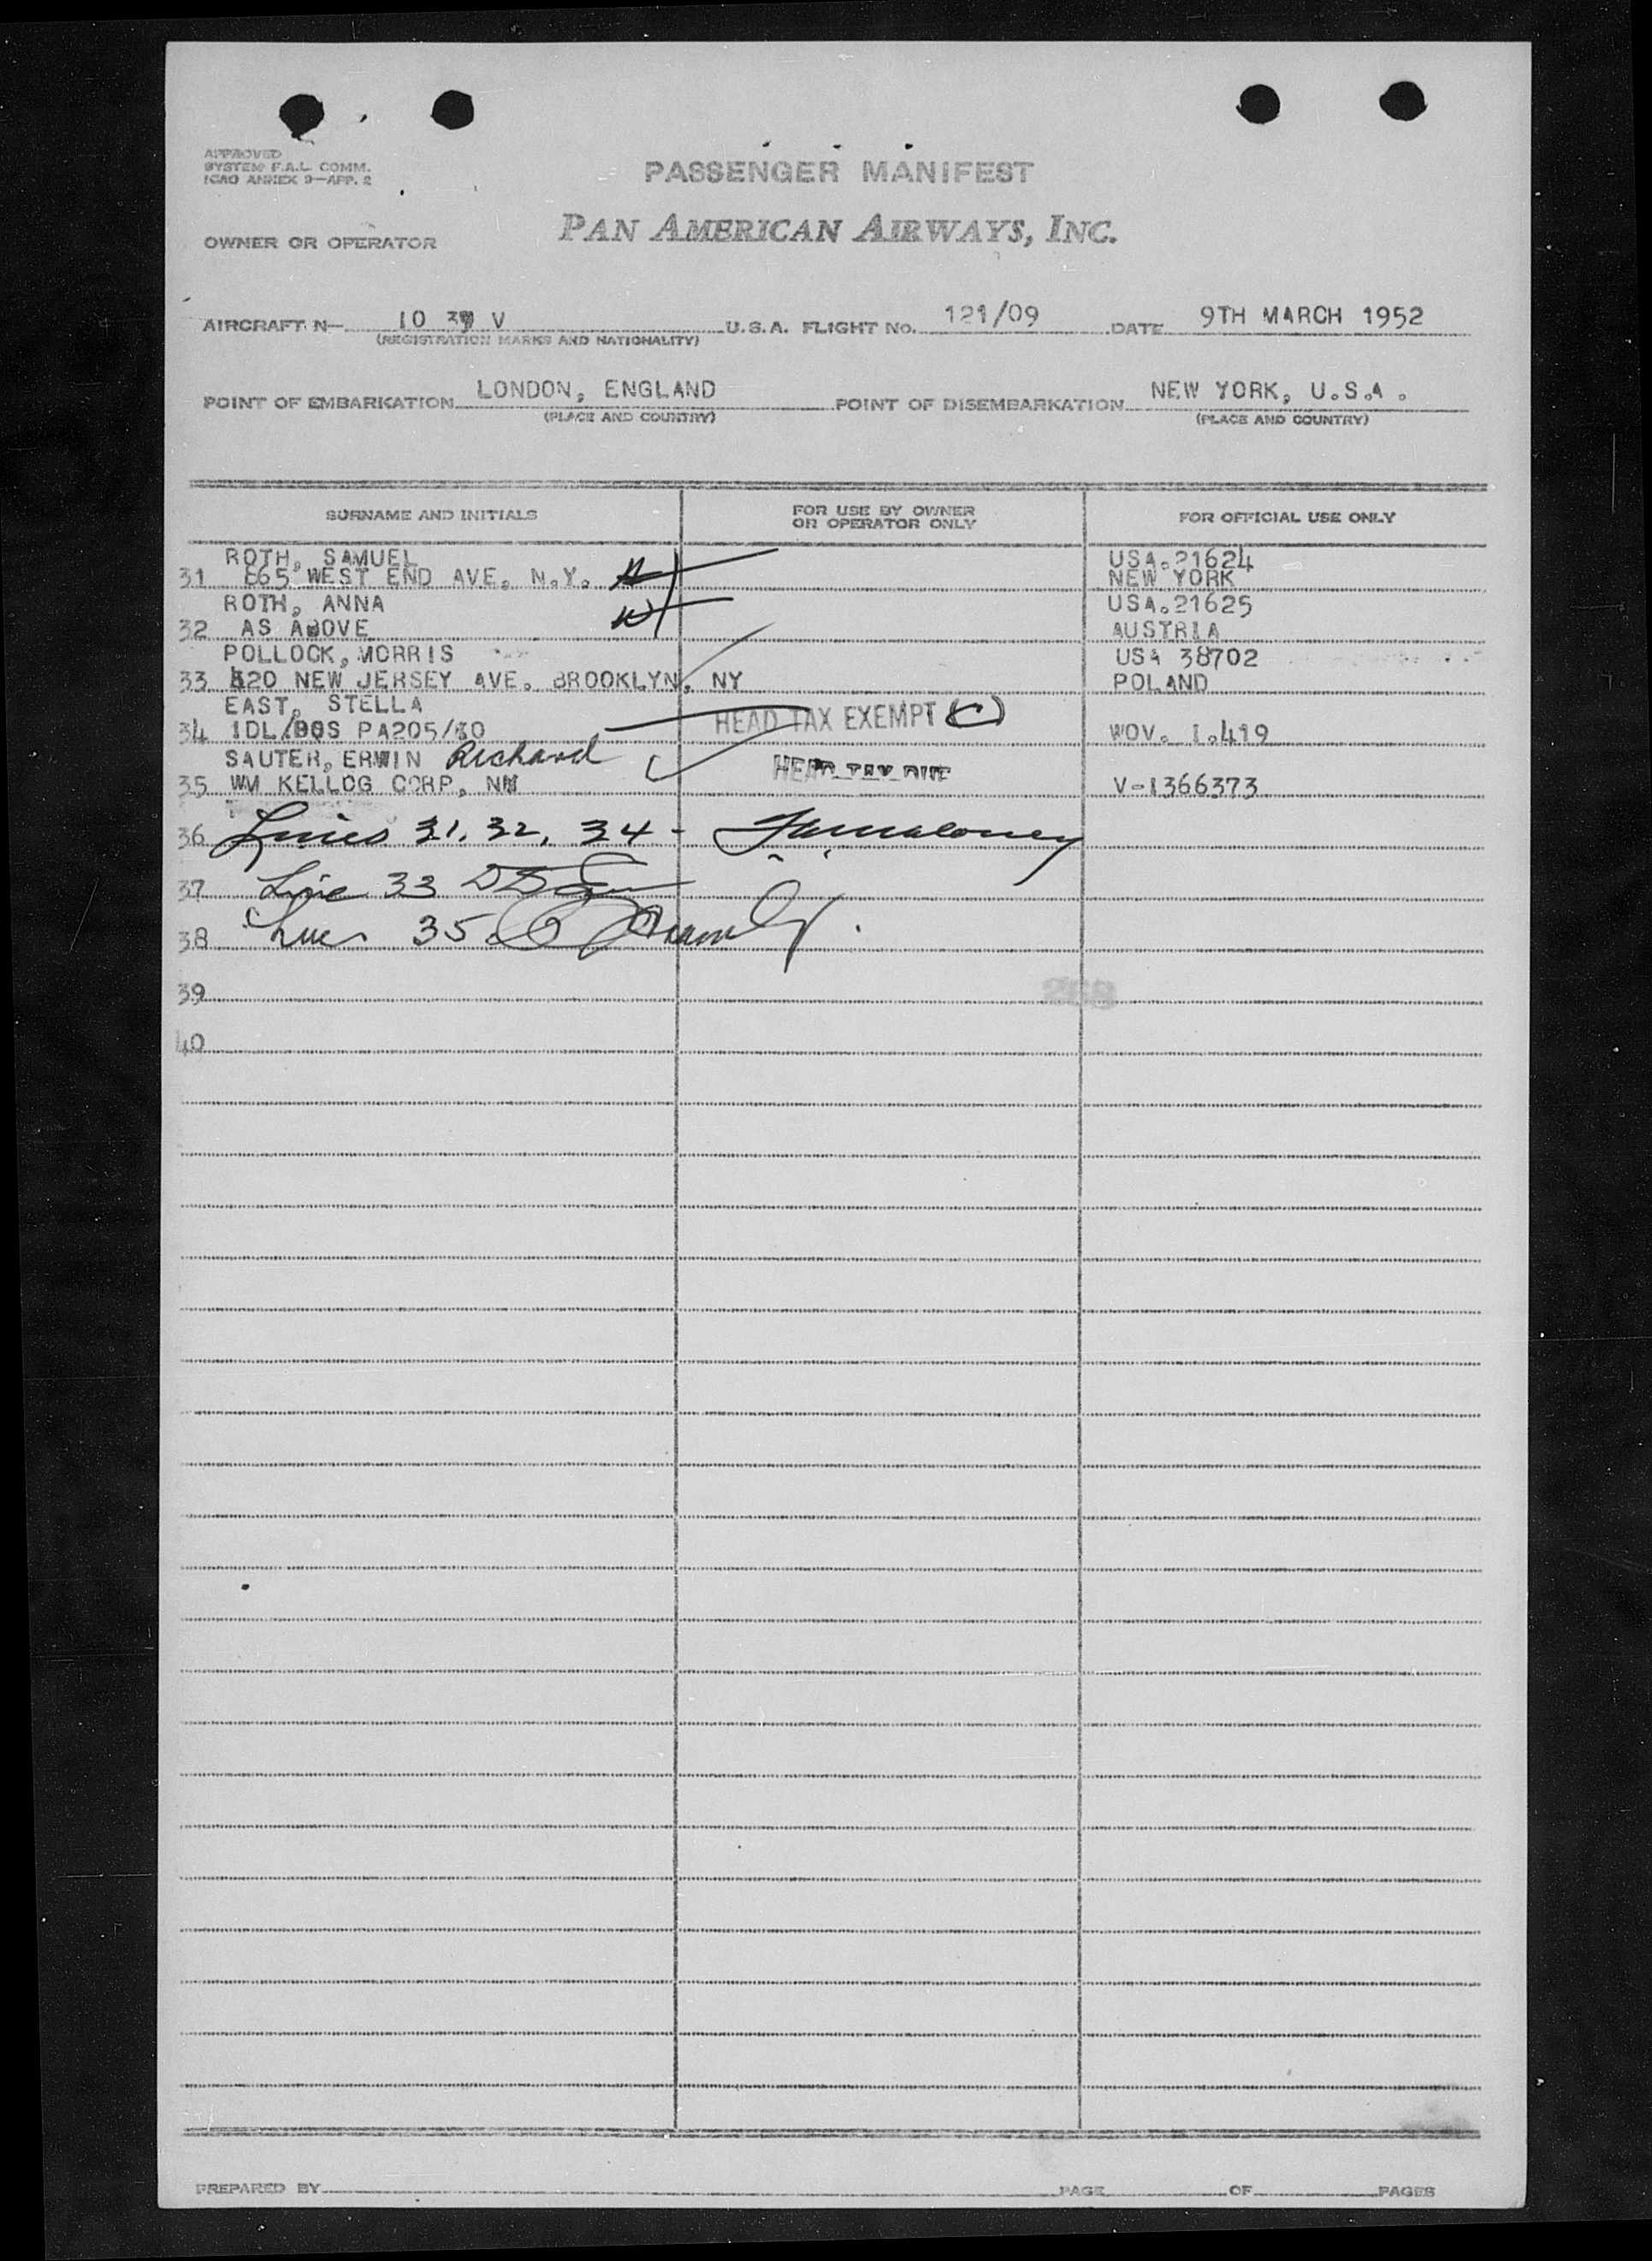 APPROVED
SYSTEM F.A.L. COMM.
ICAO ANNEX 9—APP. 2
PASSENGER MANIFEST
OWNER OR OPERATOR PAN AMERICAN AIRWAYS, INC.
AIRCRAFT N— 10 V U.S.A. FLIGHT NO. 121/09 DATE 9TH MARCH 1952
(REGISTRATION MARKS AND NATIONALITY)
POINT OF EMBARKATION LONDON, ENGLAND POINT OF DISEMBARKATION NEW YORK, U.S.A.
(PLACE AND COUNTRY) (PLACE AND COUNTRY)
SURNAME AND INITIALS FOR USE BY OWNER OR OPERATOR ONLY FOR OFFICIAL USE ONLY
ROTH, SAMUEL USA.21624
31 665 WEST END AVE. N.Y. NEW YORK
ROTH, ANNA USA.21625
32 AS ABOVE AUSTRIA
POLLOCK, MORRIS USA 38702
33 420 NEW JERSEY AVE. BROOKLYN, NY POLAND
EAST, STELLA HEAD TAX EXEMPT (C)
34 1DL/BOS PA205/10 WOV. 1.419
SAUTER, ERWIN Richard HEAD TAX DUE
35 WM KELLOG CORP, V-1366373
36 Lines 31, 32, 34 -
37 Line 33
38 Line 35
39
40
PREPARED BY PAGE OF PAGES